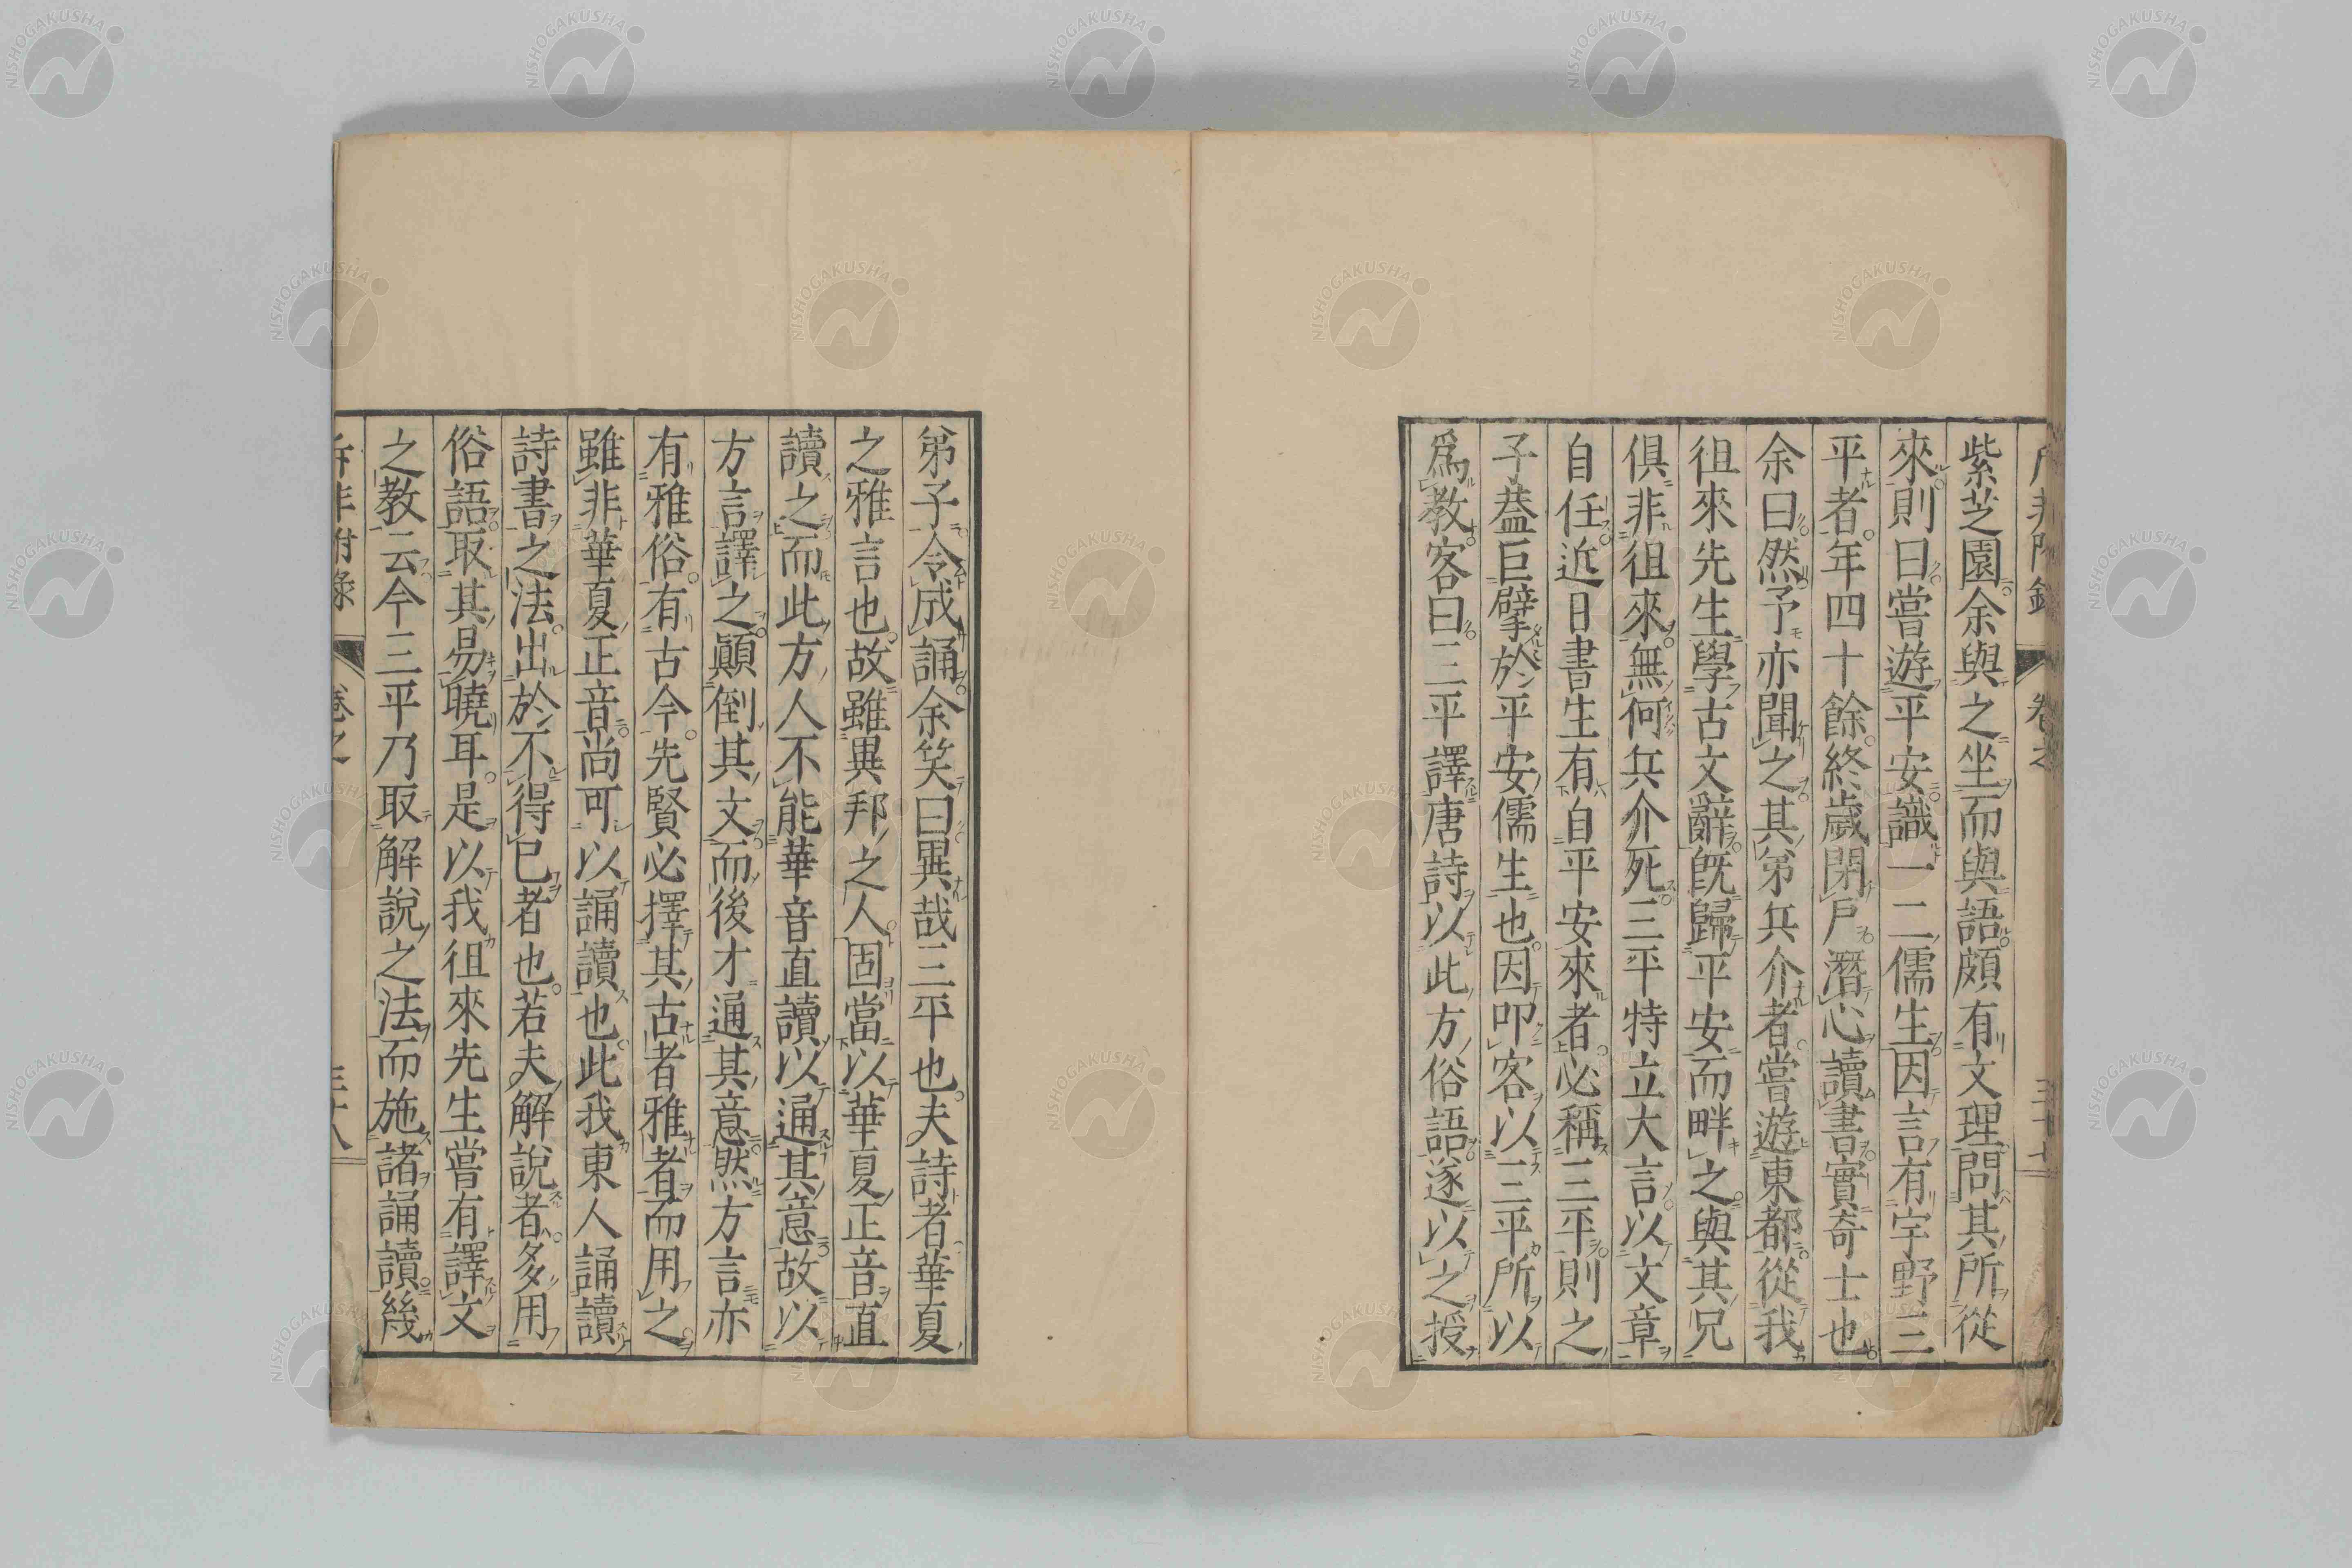 紫芝園余與之坐而與語頗有文理問其所從
來則曰嘗遊平安識一二儒生因言有宇野三
平者年四十餘終歲閉戶潛心讀書實奇士也
余曰然予亦聞之其弟兵介者嘗遊東都從我
徂來先生學古文辭既歸平安而畔之與其兄
俱非徂來無何兵介死三平特立大言以文章
自任近日書生有自平安來者必稱三平則之
子葢巨擘於平安儒生也因叩客以三平所以
爲教客曰三平譯唐詩以此方俗語遂以之授
弟子令成誦余笑曰異哉三平也夫詩者華夏
之雅言也故雖異邦之人固當以華夏正音直
讀之而此方人不能華音直讀以通其意故以
方言譯之顚倒其文而後才通其意然方言亦
有雅俗有古今先賢必擇其古者雅者而用之
雖非華夏正音尚可以誦讀也此我東人誦讀
詩書之法出於不得已者也若夫解說者多用
俗語取其易曉耳是以我徂來先生嘗有譯文
之教云今三平乃取解說之法而施諸誦讀幾
斥非附錄 卷之 三十八
NISHOGAKUSHA